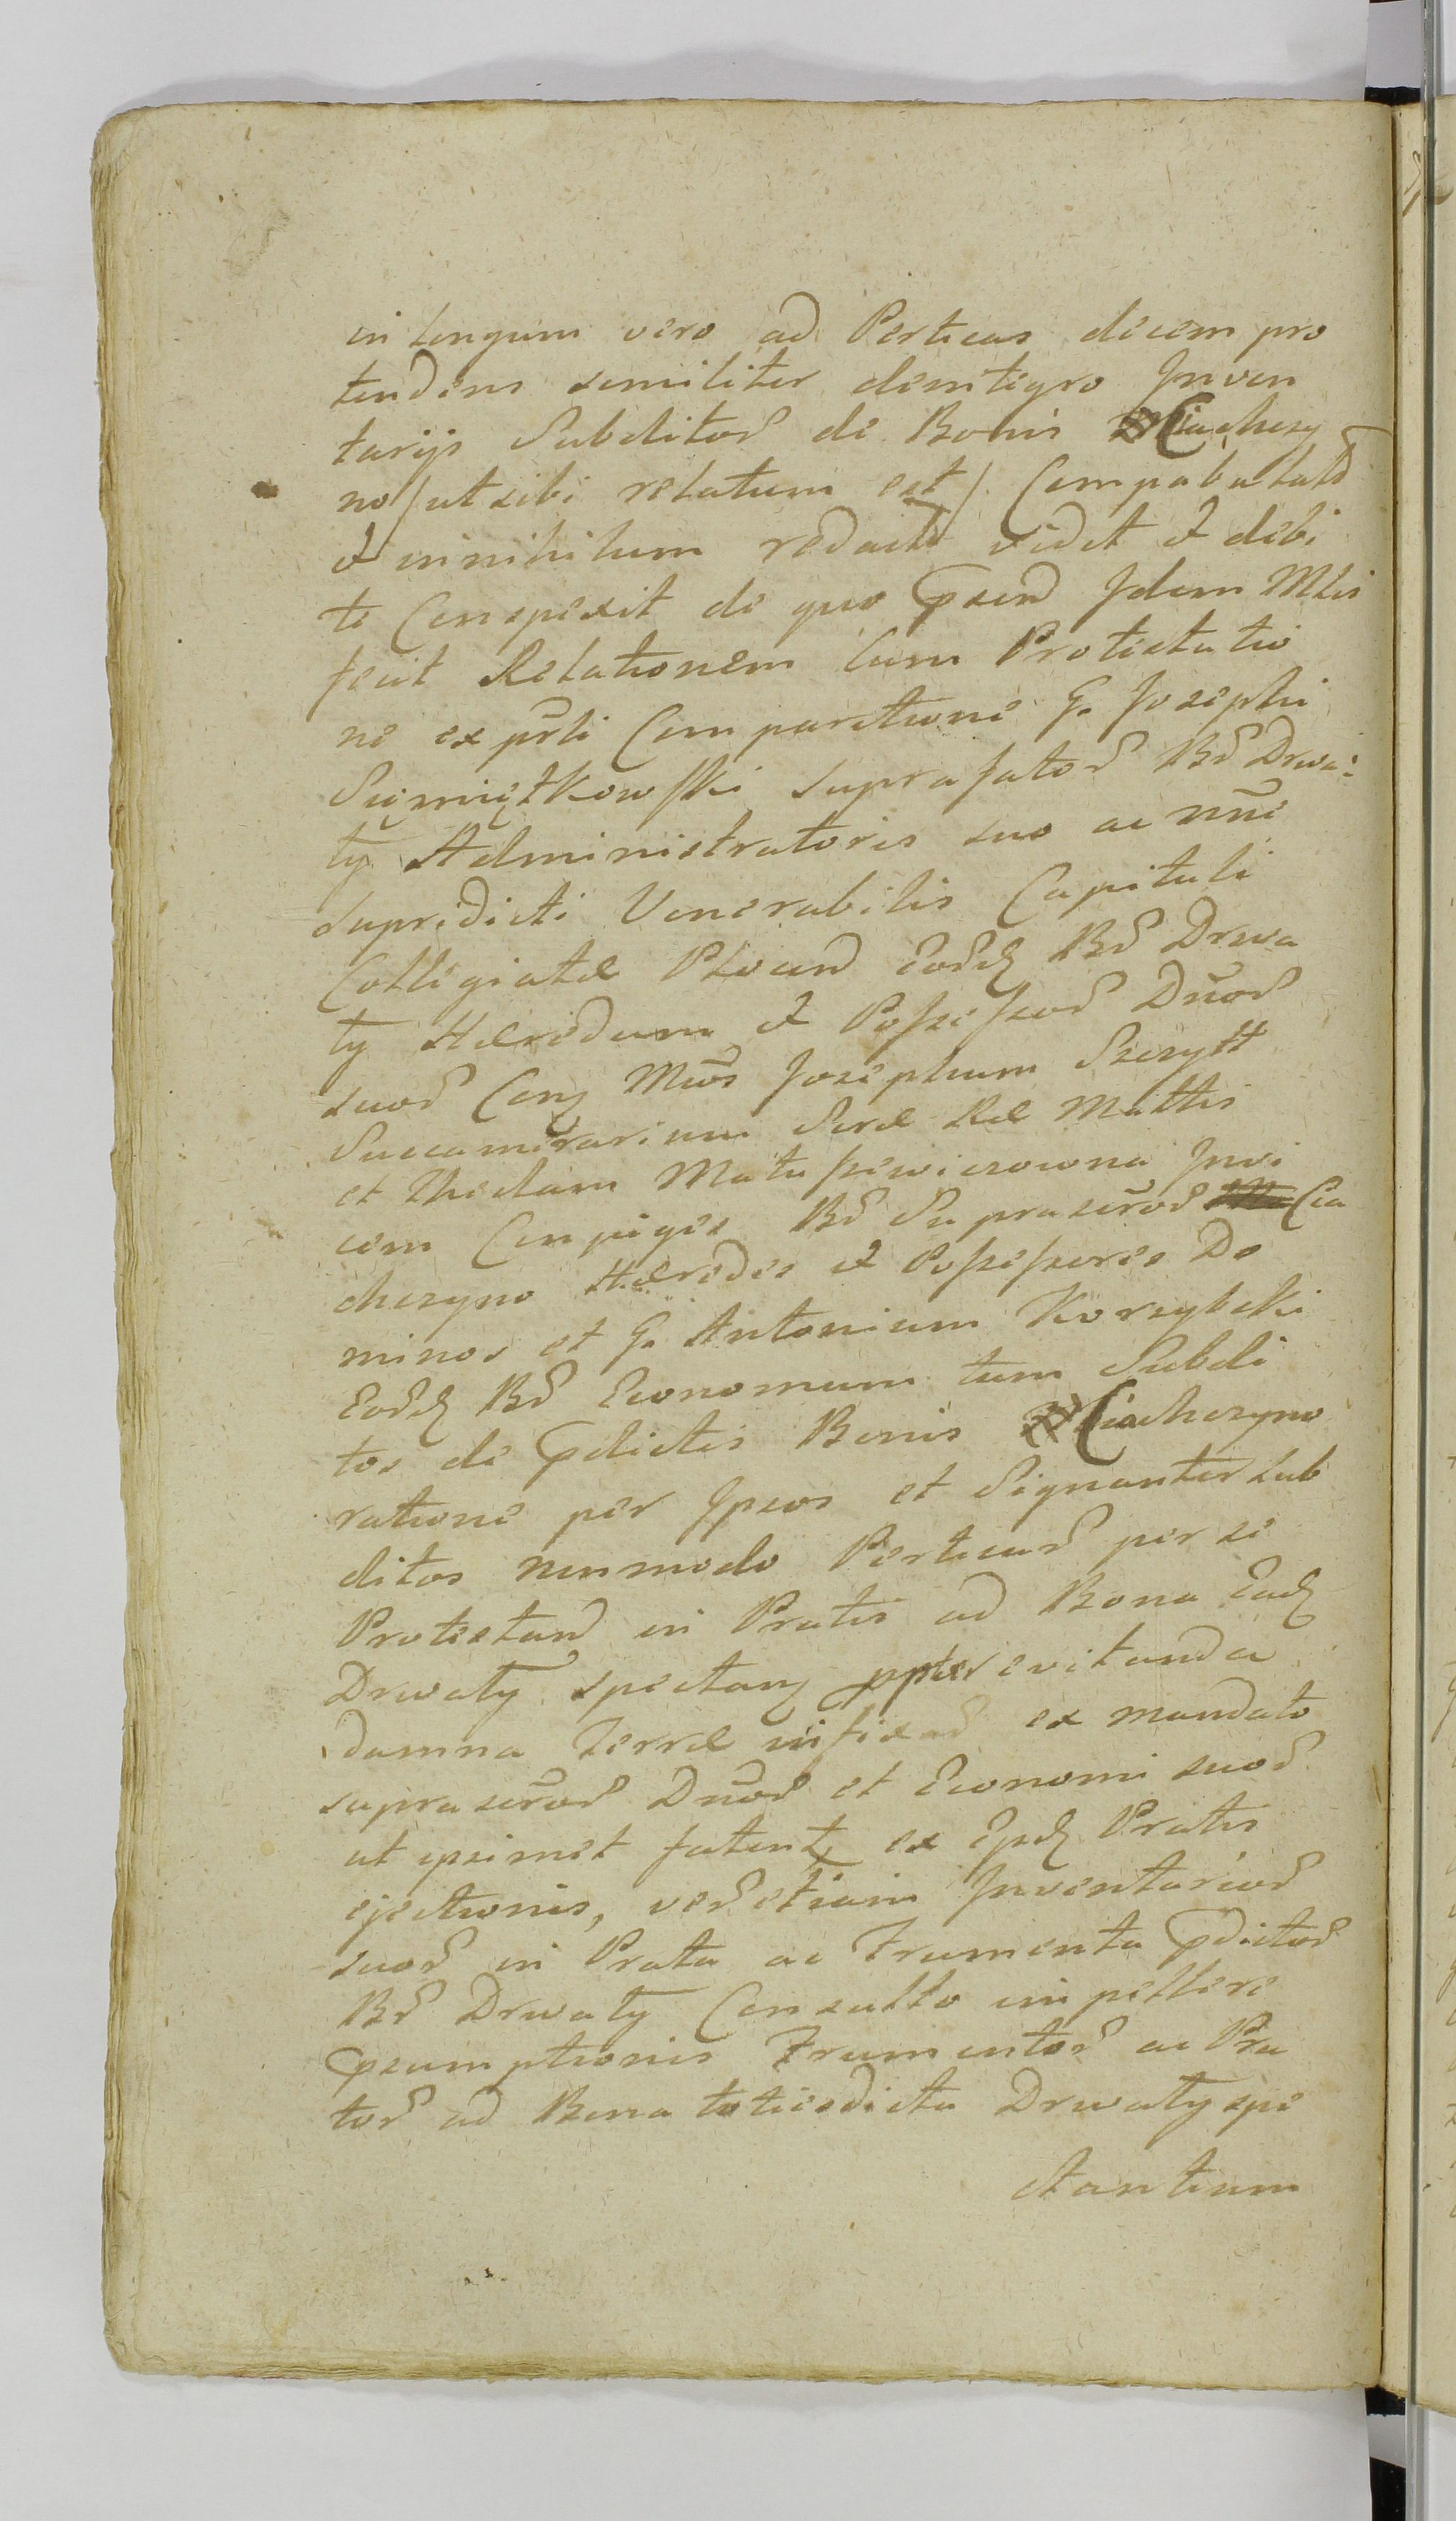 in longum vero ad Perticas decem pro
tendens similiter deintegro Inven
tarijs Subditor̃ de Bonis Ciachczy
no /ut sibi relatum est/ Compabulatũ
et in nihilum redactũ vidit et debi
te Conspexit de quo p̃send Idem Mlis
fecit Relationem cum Protestatio
ne ex pr̃li Comparitione G. Josephi
Sumiętkowski suprafator̃ Br̃ Drwa:
ty Administratoris suo ac nñe
supradicti Venerabilis Capituli
Collegiatæ Plocen̄ eor̃d Br̃ Drwa
ty Hæredum et Possessor̃ Dñor̃
suor̃ Con̄ Mcos Josephum Szczytt
Succamerarium Siræ Ræ Mattis
et Theclam Matuszewiczowna Invi
cem Conjuges Br̃ Suprascr̃or̃ Cia
chczyno Hæredes et Possessores Do
minos et G. Antonium Korzybski
Eor̃d Br̃ Economum tum Subdi
tos de p̃dictis Bonis Ciachczyno
ratione per Ipsos et Signanter Sub
ditos nonmodo Perticar̃ per se
Protestan̄ in Pratis ad Bona Ead
Drwaty spectan̄ ppter evitanda
damna Terræ infixar̃ ex mandato
suprascr̃or̃ Dñor̃ et Economi suor̃
ut ipsimet fatent, ex Ipsd Pratis
ejectionis, ver̃ etiam Inventarior̃
suor̃ in Prata ac Frumenta p̃dictor̃
Br̃ Drwaty Consulto impellere
p̃sumptionis Frumentor̃ ac Pra
tor̃ ad Bona totiesdicta Drwaty spe
ctantium